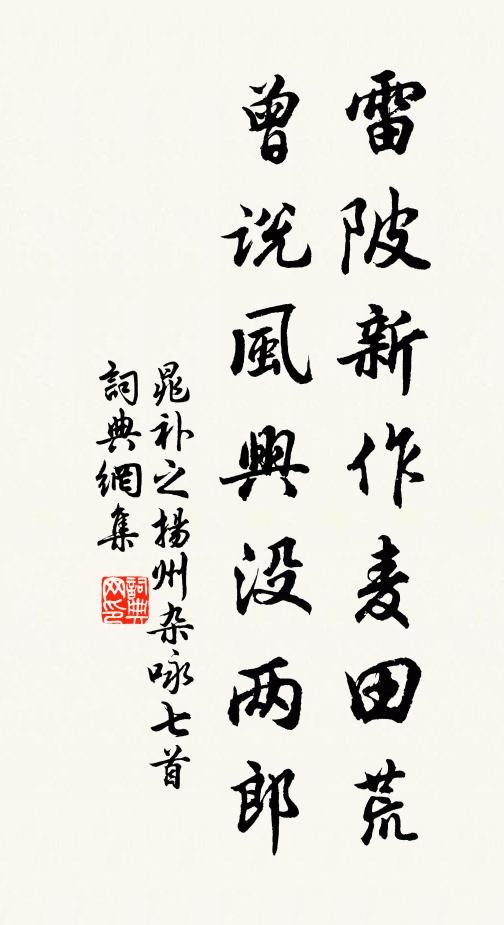 雷陂新作麦田荒
曾说風興没两郎
晁补之揚州杂咏七首
詞典網集
詞典
网印